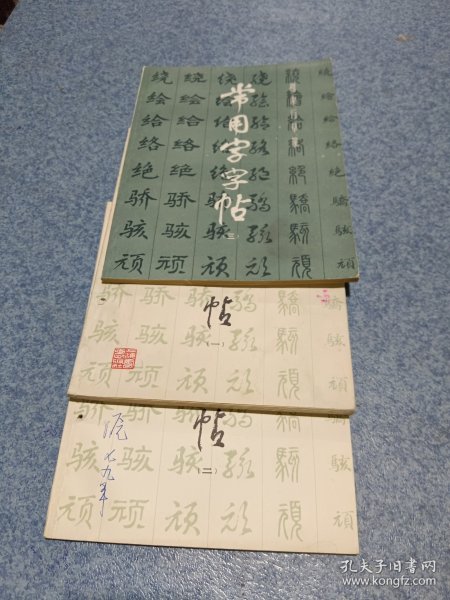 绕 绕 绕 绕 繞 绕
绘 绘 绘 绘 繪 绘
给 给 给 给 給 给
络 络 络 络 絡 络
绝 绝 绝 绝 絕 绝
骄 骄 骄 骄 驕 骄
骇 骇 骇 骇 駭 骇
顽 顽 顽 顽 頑 顽
常用字字帖
三
骄 骄 骄 骄 驕 骄
骇 骇 骇 骇 駭 骇
顽 顽 顽 顽 頑 顽
帖
(一)
骇 骇 骇 骇 駭 骇
顽 顽 顽 顽 頑 顽
帖
(二)
七九年
孔夫子旧书网
www.kongfz.com